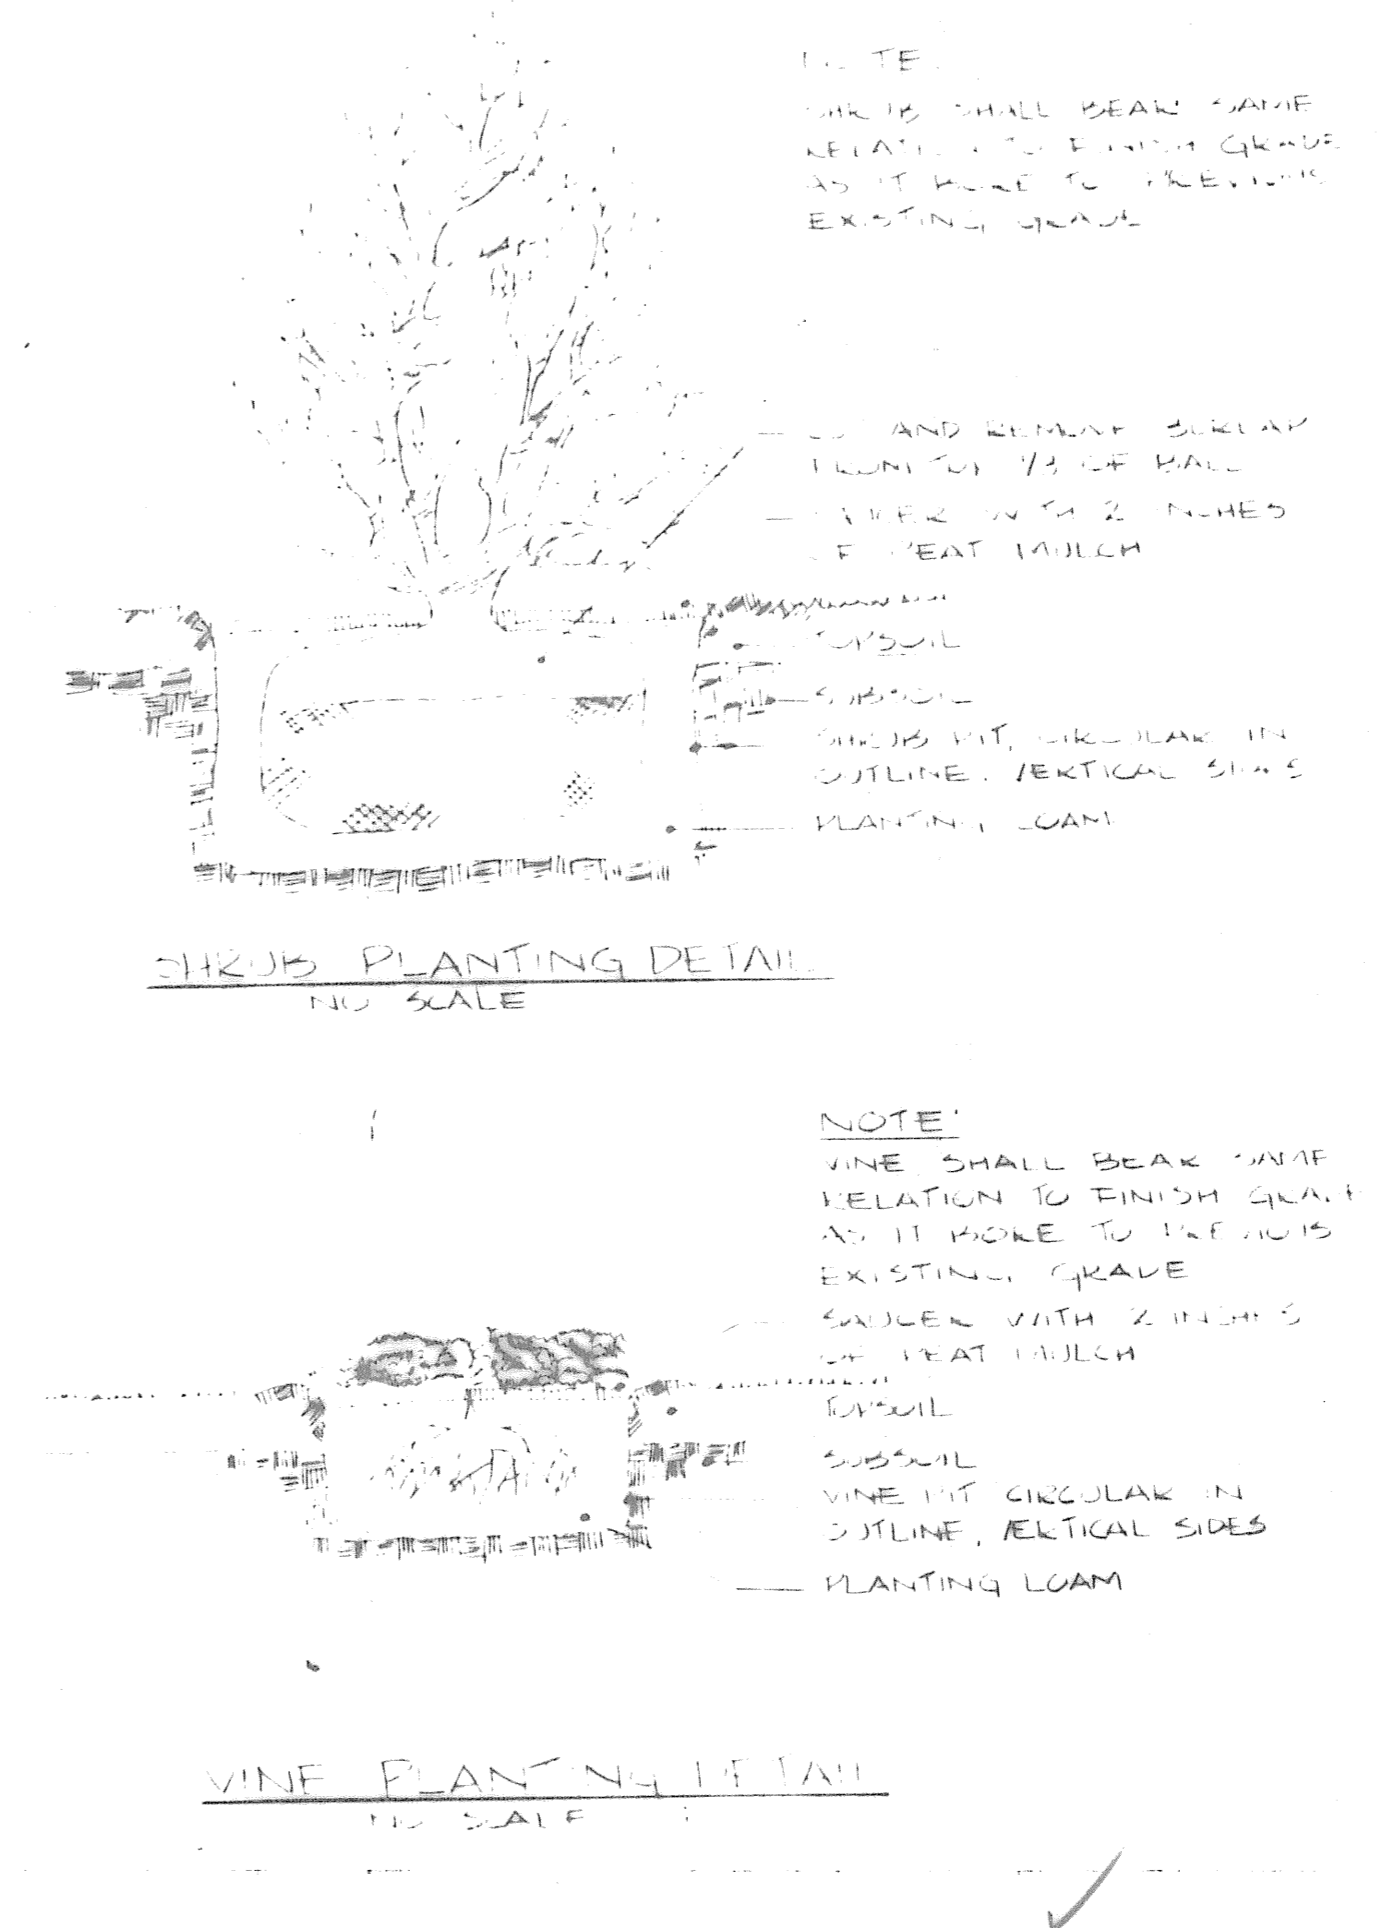 NOTE:
SHRUB SHALL BEAR SAME
RELATION TO FINISH GRADE
AS IT BORE TO PREVIOUS
EXISTING GRADE
CUT AND REMOVE BURLAP
FROM TOP 1/3 OF BALL
SAUCER WITH 2 INCHES
OF PEAT MULCH
TOPSOIL
SUBSOIL
SHRUB PIT, CIRCULAR IN
OUTLINE, VERTICAL SIDES
PLANTING LOAM
SHRUB PLANTING DETAIL
NO SCALE
NOTE:
VINE SHALL BEAR SAME
RELATION TO FINISH GRADE
AS IT BORE TO PREVIOUS
EXISTING GRADE
SAUCER WITH 2 INCHES
OF PEAT MULCH
TOPSOIL
SUBSOIL
VINE PIT CIRCULAR IN
OUTLINE, VERTICAL SIDES
PLANTING LOAM
VINE PLANTING DETAIL
NO SCALE